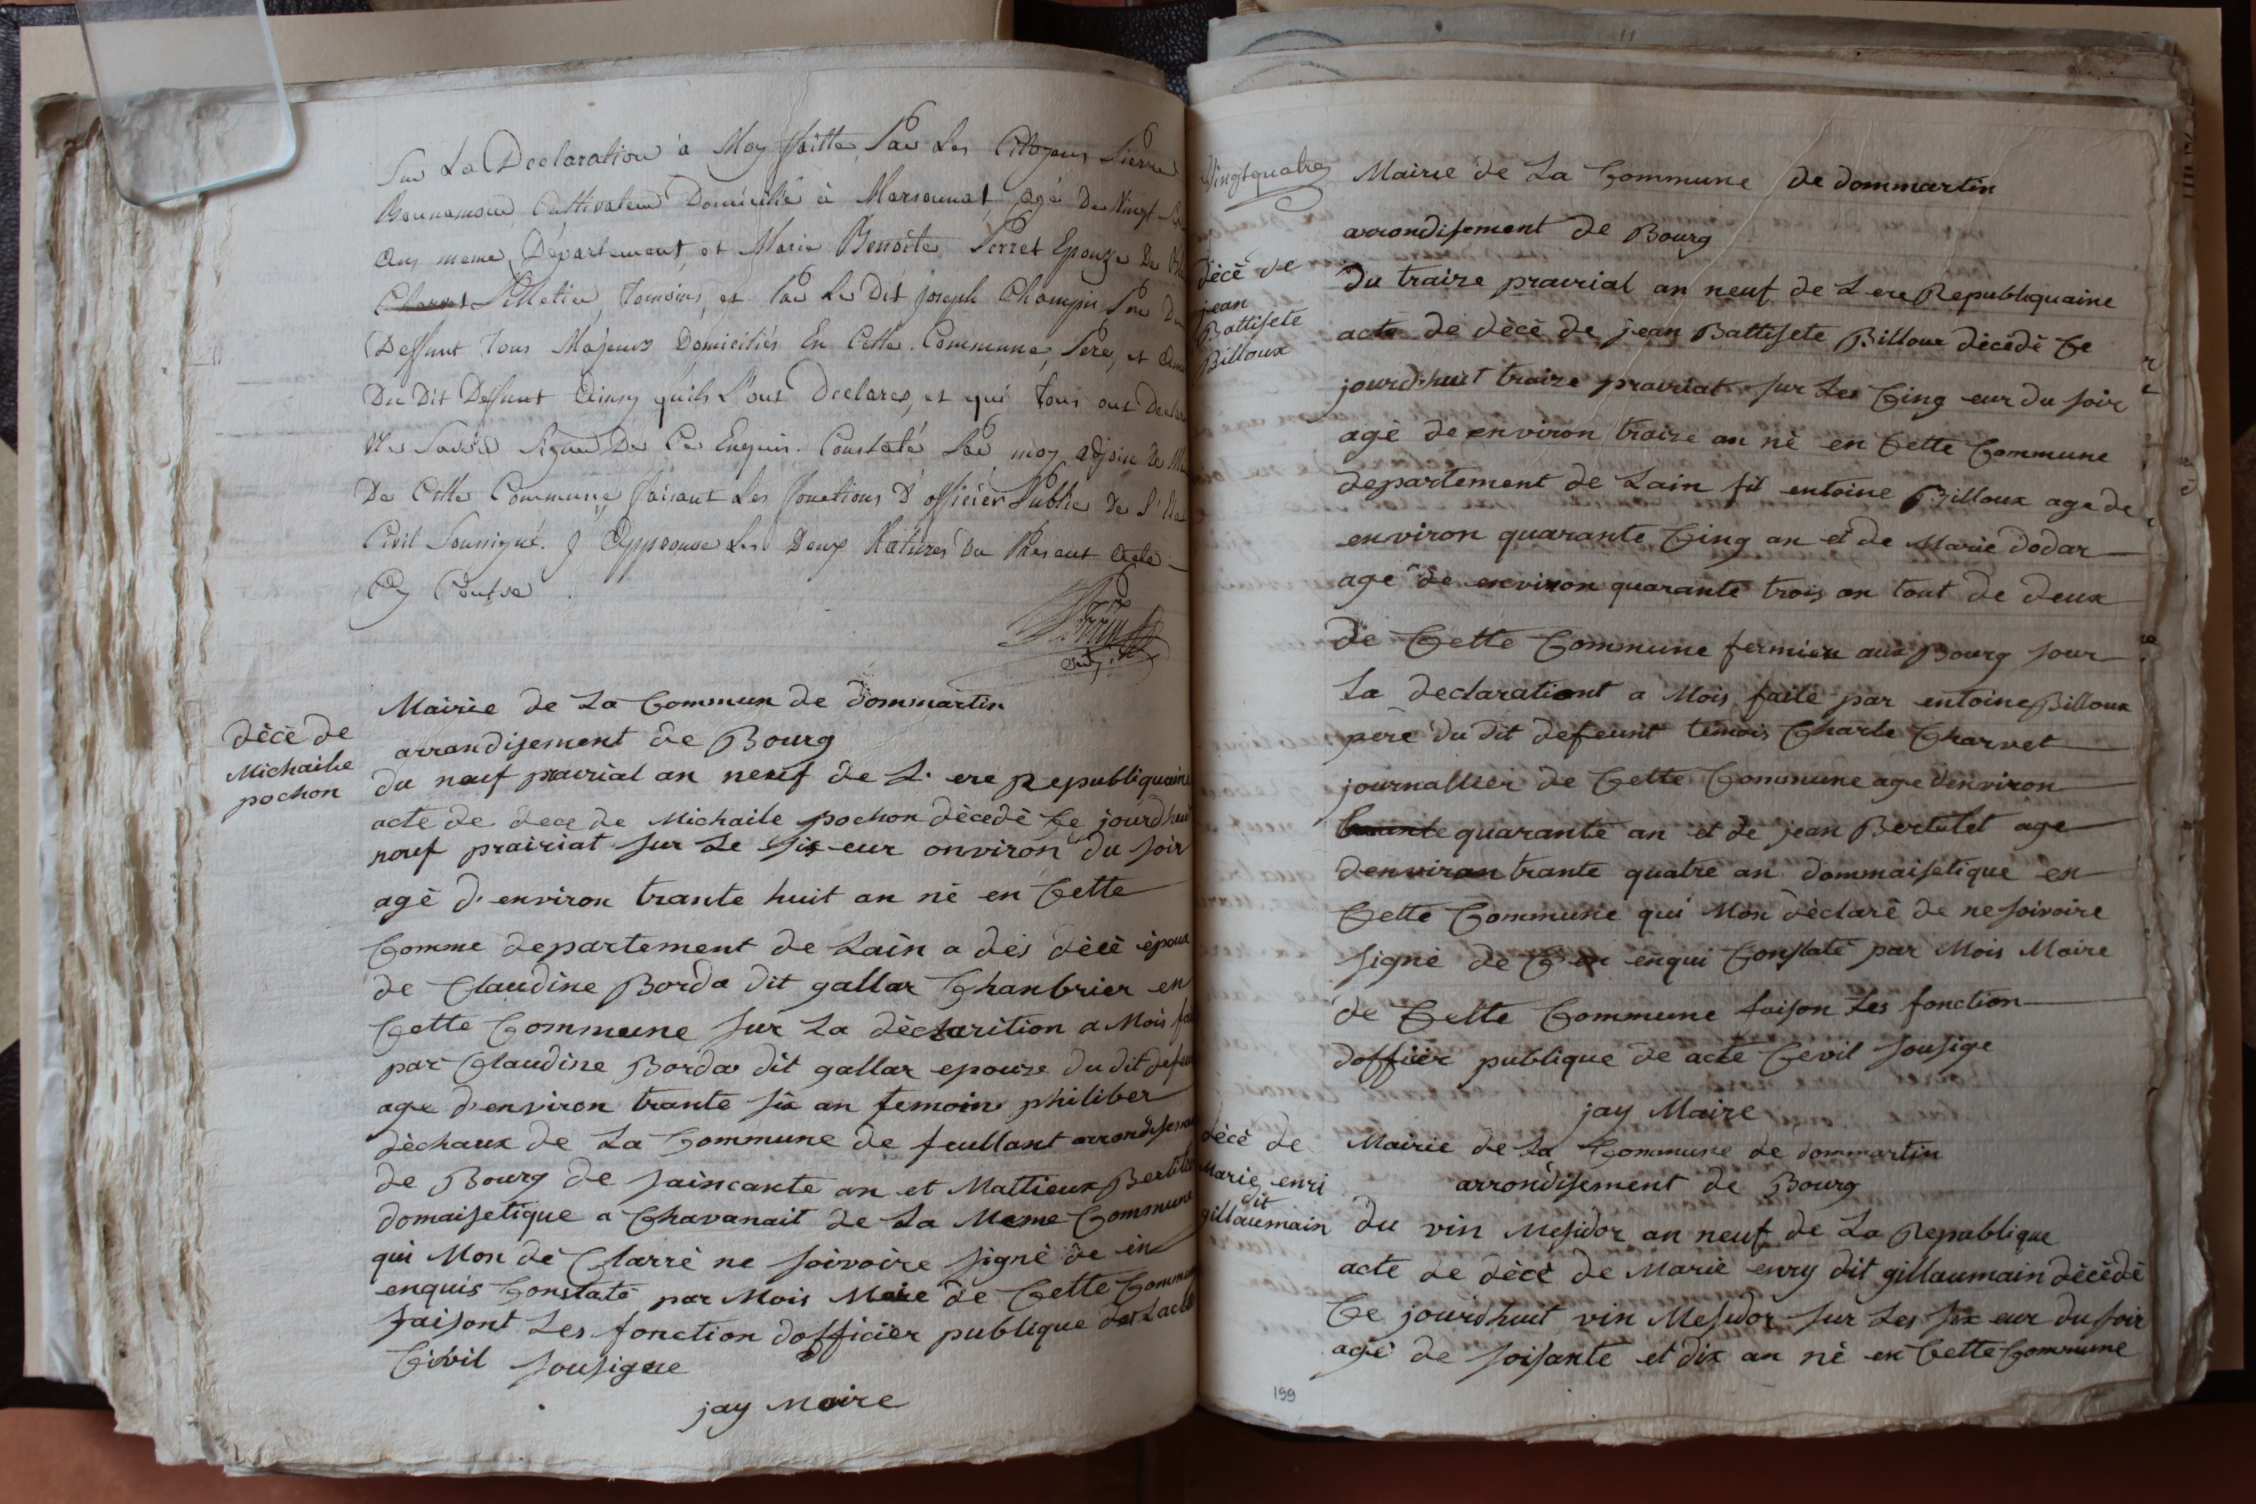 Sur La Declaration à Moy faitte Par Les Citoyens Pierre
Bonnamour Cultivateur Domicilié à Marsonnat agé De Vingt
Ans meme Département, et Marie Benoite Perret Epouze De
Pelletier Temoins, et Par Le Dit joseph Champu Pere Du
Deffunt Tous Majeurs Domiciliés En Cette Commune, Pere, et
Du Dit Deffunt Ainsy quils L'ont Declarez, et qui tous ont Declaré
Ne Savoir Signer De Ce Enquis. Constaté Par moy adjoin de
De Cette Commune faisant Les fonctions D'officier Public De L'
Civil Soussigné. J'Approuve Les Deux Ratures Du Présent Acte
décè de
Michaile
pochon
Mairie de La Commun de dommartin
arrandisement de Bourg
du neuf prairial an neuf de L. ere Republiquaine
acte de dece de Michaile pochon dècedè Ce jourdhuit
nouf prairiat sur Le six eur onviron du soir
agè d'environ trante huit an nè en Cette
Comme departement de Lain a dès dècè èpoux
de Claudine Borda dit gallar Chanbrier en
Cette Commune sur La dèclarition a Mois
par Claudine Borda dit gallar epouze du dit
age d'environ trante six an temoin philiber
dèchaux de La Commune de feullant
de Bourg de saincante an et Mattieux
domaisetique a Chavanait de La Meme Commune
qui Mon dè Clarrè ne soivoire signè de èn
enquis Constatè par Mois Maire de Cette Commune
faisont Les fonction dofficier publique
Civil sousigne
jay Maire
Vingtquatre
Mairie de La Commune de dommartin
arrondisement de Bourg
dècè de
jean
Battisete
Billoux
du traize prairial an neuf de L ere Republiquaine
acte de dècè de jean Battisete Billoux dècedè Ce
jourdhuit traize prairiat sur Les Cinq eur du soir
agè de environ traize an nè en Cette Commune
departement de Lain fil entoine Billoux age de
environ quarante Cinq an et de Marie dodar
age de environ quarante trois an tout de deux
de Cette Commune fermier aux Bourg sour
La declarationt a Mois faite par entoine Billoux
pere du dit defeunt temois Charle Charvet
journallier de Cette Commune age denviron
quarante an et de jean Bertelet age
denviron trante quatre an dommaisetique en
Cette Commune qui Mon dèclarè de ne soivoire
signè de Cen enqui Constatè par Mois Maire
de Cette Commune faison Les fonction
dofficier publique de acte Cevil sousige
jay Maire
dècè de
Marie enri
dit
gillaumain
Mairie de La Commune de dommartin
arrondisement de Bourg
du vin Mesidor an neuf de La Republique
acte de dècè de Marie enry dit gillaumain dècèdè
Ce jourdhuit vin Mesidor sur Les six eur du soir
agè de soisante et dix an nè en Cette Commune
199